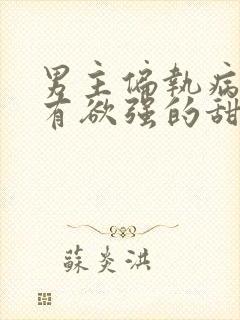 男主偏执病
有欲强的甜
蘇炎洪